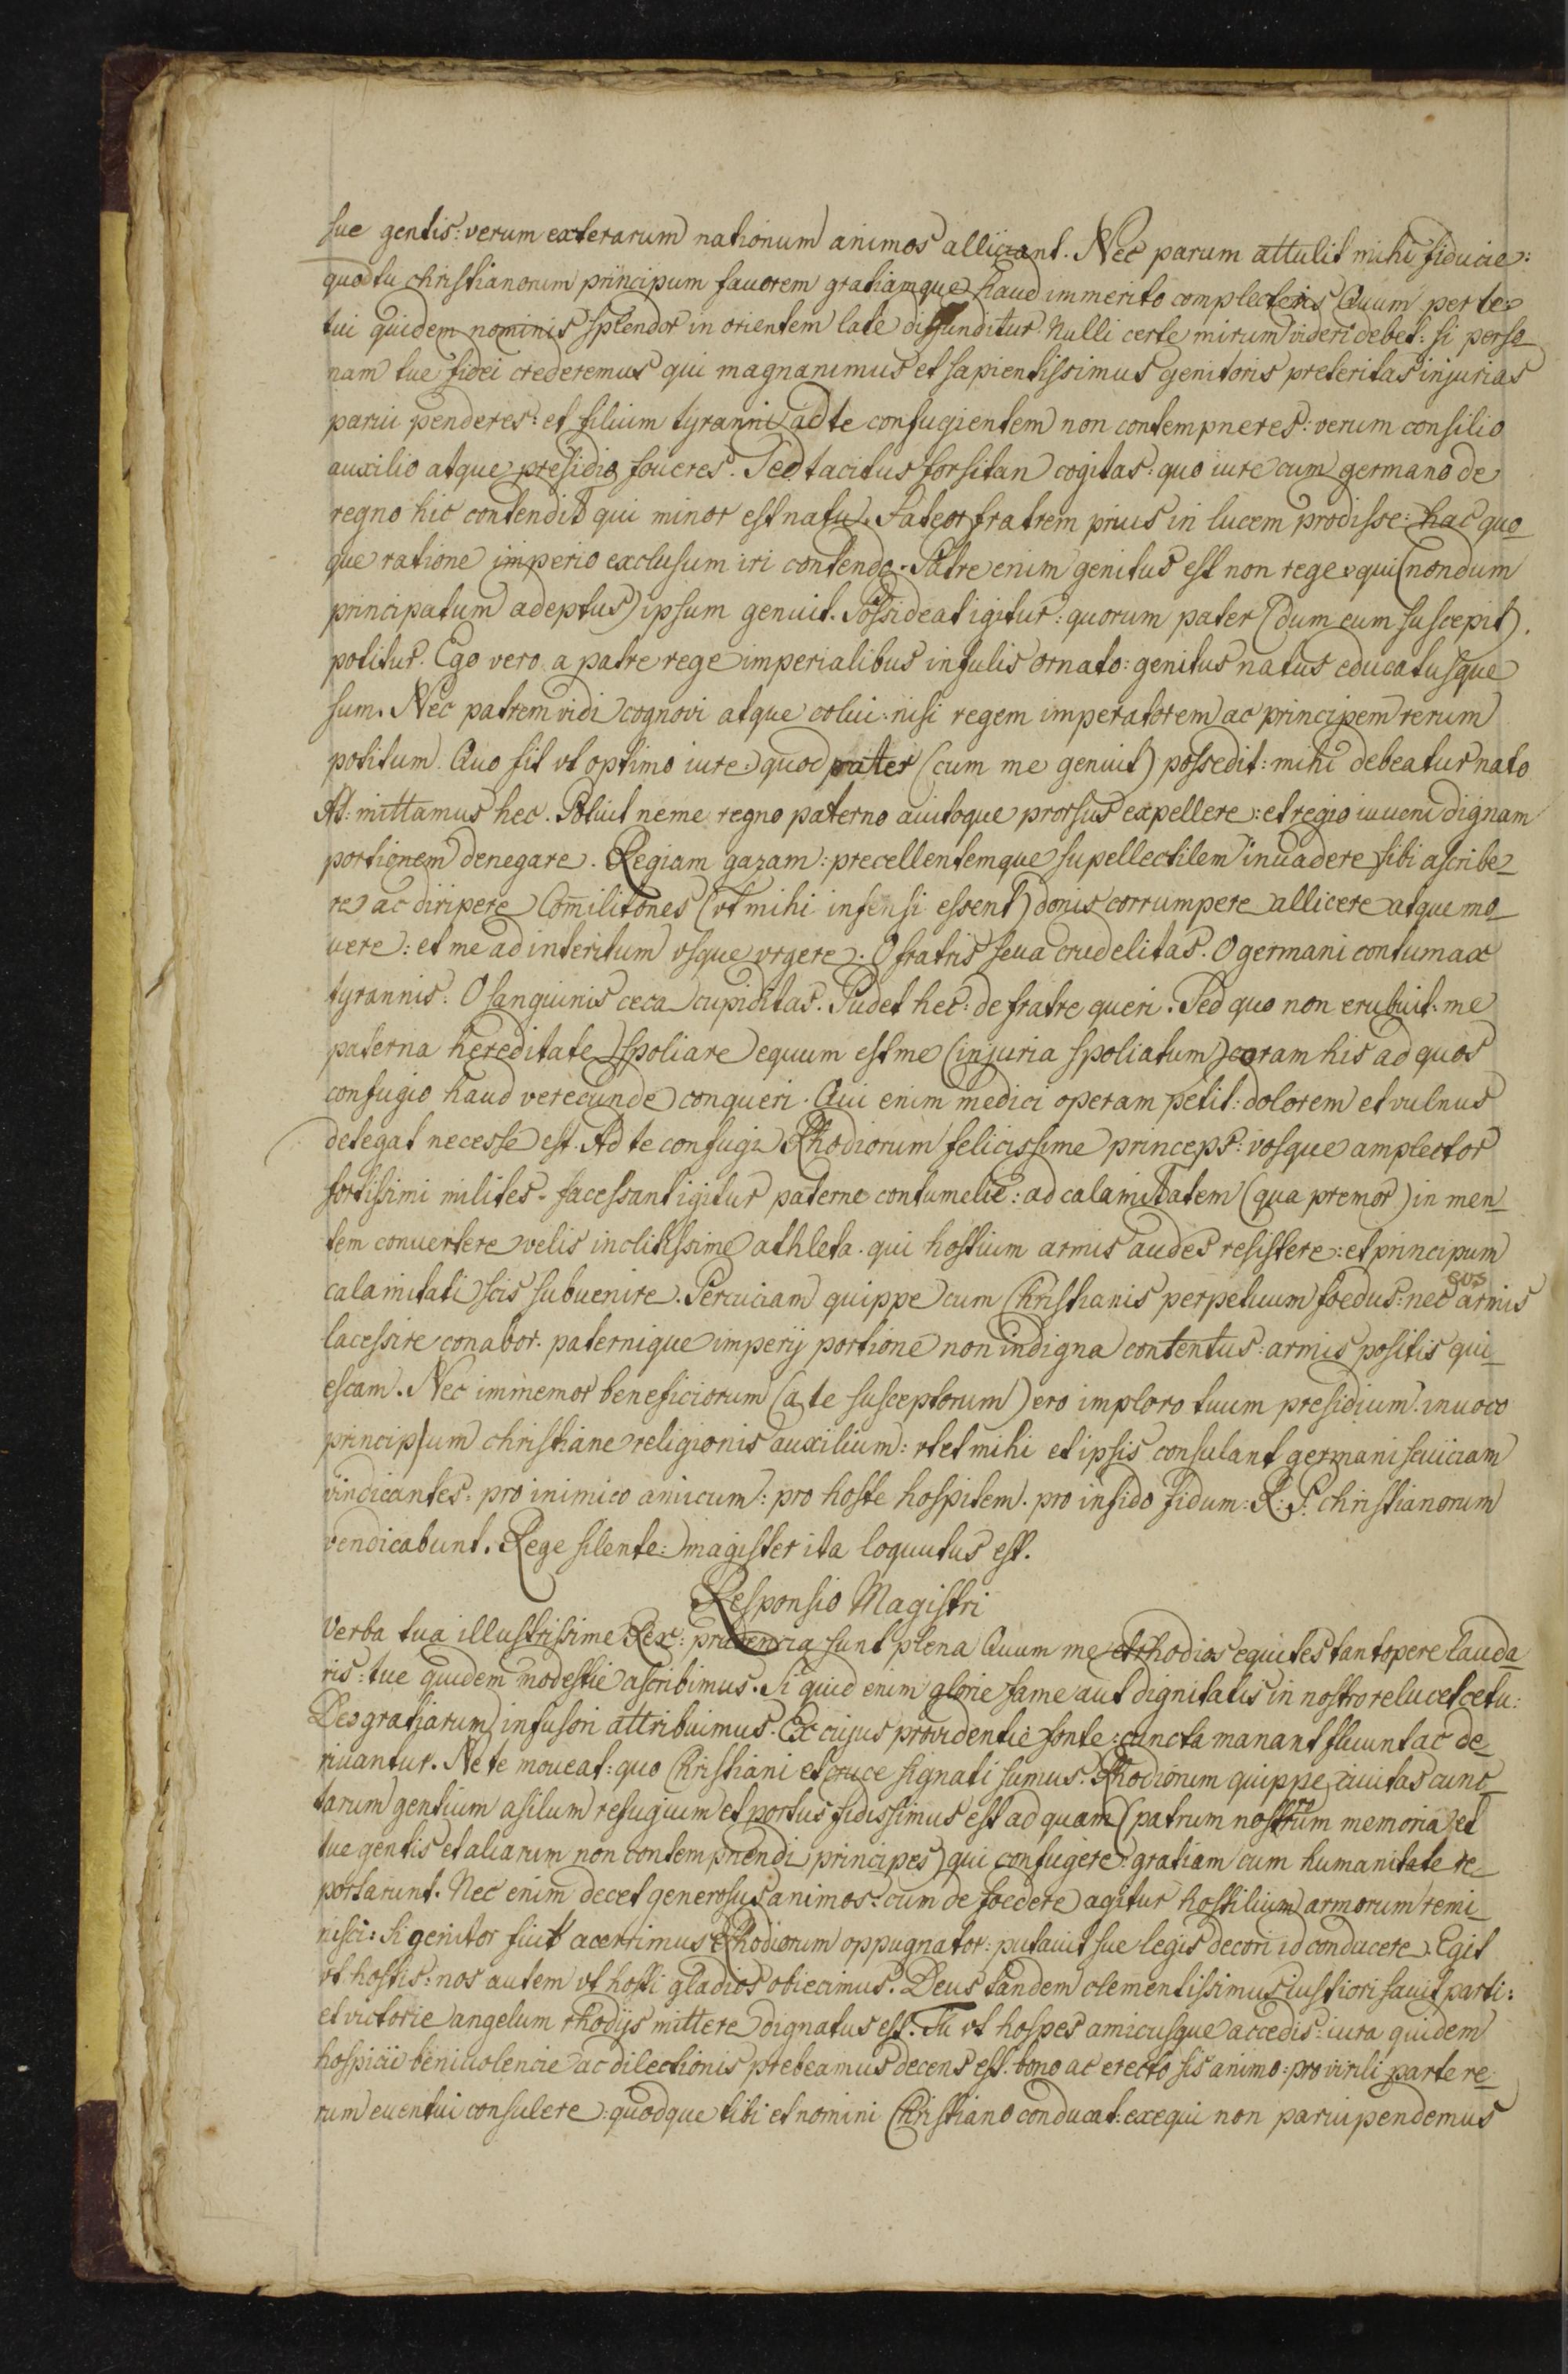 sue gentis: verum exterarum nationum animos alliciant. Nec parum attulit mihi fiducie:
quod tu christianorum principum fauorem gratiamque haud immerito complecteris Quum per te:
tui quidem nominis splendor in orientem late diffunditur. Nulli certe mirum videri debet: si perso_
nam tue fidei crederemus qui magnanimus et sapientissimus genitoris preteritas injurias
parui penderes: et filium tyranni ad te confugientem non contempneres: verum consilio
auxilio atque presidio foueres. Sed tacitus forsitan cogitas: quo iure cum germano de
regno hic contendit qui minor est natu. Fateor fratrem prius in lucem prodisse: hac quo_
que ratione imperio exclusum iri contendo. Patre enim genitus est non rege: qui (nondum
principatum adeptus) ipsum genuit. Possideat igitur: quorum pater (dum eum suscepit).
potitur. Ego vero a patre rege imperialibus infulis ornato: genitus natus educatusque
sum. Nec patrem vidi cognovi atque colui: nisi regem imperatorem ac principem rerum
potitum. Quo fit vt optimo iure: quod pater (cum me genuit) possedit: mihi debeatur nato
At: mittamus hec. Potuit neme regno paterno auitoque prorsus expellere: et regio iuueni dignam
portionem denegare. Regiam gazam: precellentemque supellectilem inuadere sibi ascribe_
re ac diripere Comilitones (vt mihi infensi essent) donis corrumpere allicere atque mo_
uere: et me ad interitum vsque vrgere. O fratris seua crudelitas. O germani contumax
tyrannis. O sanguinis ceca cupiditas. Pudet hec: de fratre queri. Sed quo non erubuit: me
paterna hereditate spoliare equum est me (injuria spoliatum) coram his ad quos
confugio haud verecunde conqueri. Qui enim medici operam petit: dolorem et vulnus
detegat necesse est. Ad te confugi Rhodiorum felicissime princeps: vosque amplector
fortissimi milites. facessant igitur paterne contumelie: ad calamitatem (qua premor) in men_
tem conuertere velis inclitissime athleta. qui hostium armis audes resistere: et principum
calamitati scis subuenire. Percuciam quippe cum Christianis perpetuum foedus: nec eos armis
lacessire conabor. paternique imperij portione non indigna contentus: armis positis qui_
escam. Nec immemor beneficiorum (a te susceptorum) ero imploro tuum presidium. inuoco
principum christiane religionis auxilium: vt et mihi et ipsis consulant germani seuiciam
vindicantes: pro inimico amicum: pro hoste hospitem. pro infido fidum: R: P. christianorum
vendicabunt. Rege silente: magister ita loquutus est.
Responsio Magistri
Verba tua illustrissime Rex: prudencia sunt plena Quum me et rhodios equites tantopere lauda_
ris: tue quidem modestie ascribimus. Si quid enim glorie fame aut dignitatis in nostro relucet cetu:
Deo gratiarum infusori attribuimus. Ex cujus providentie fonte: cuncta manant fluunt ac de_
riuantur. Ne te moueat: quo Christiani et cruce signati sumus. Rhodiorum quippe ciuitas cunc_
tarum gentium asilum refugium et portus fidissimus est ad quam (patrum nostrum memoria) et
tue gentis et aliarum non contempnendi principes) qui confugere: gratiam cum humanitate re_
portarunt. Nec enim decet generosus animos: cum de foedere agitur hostilium armorum remi_
nisci: Si genitor fuit acerrimus Rhodiorum oppugnator: putauit sue legis decori id conducere. Egit
vt hostis: nos autem vt hosti gladios obiecimus. Deus tandem clementissimus iustiori fauit parti:
et victorie angelum rhodijs mittere dignatus est. Tu vt hospes amicusque accedis: iura quidem
hospicii beniuolencie ac dilectionis prebeamus decens est. bono ac erecto sis animo: pro virili parte re_
rum euentui consulere: quodque tibi et nomini Christiano conducat: exequi non paruipendemus